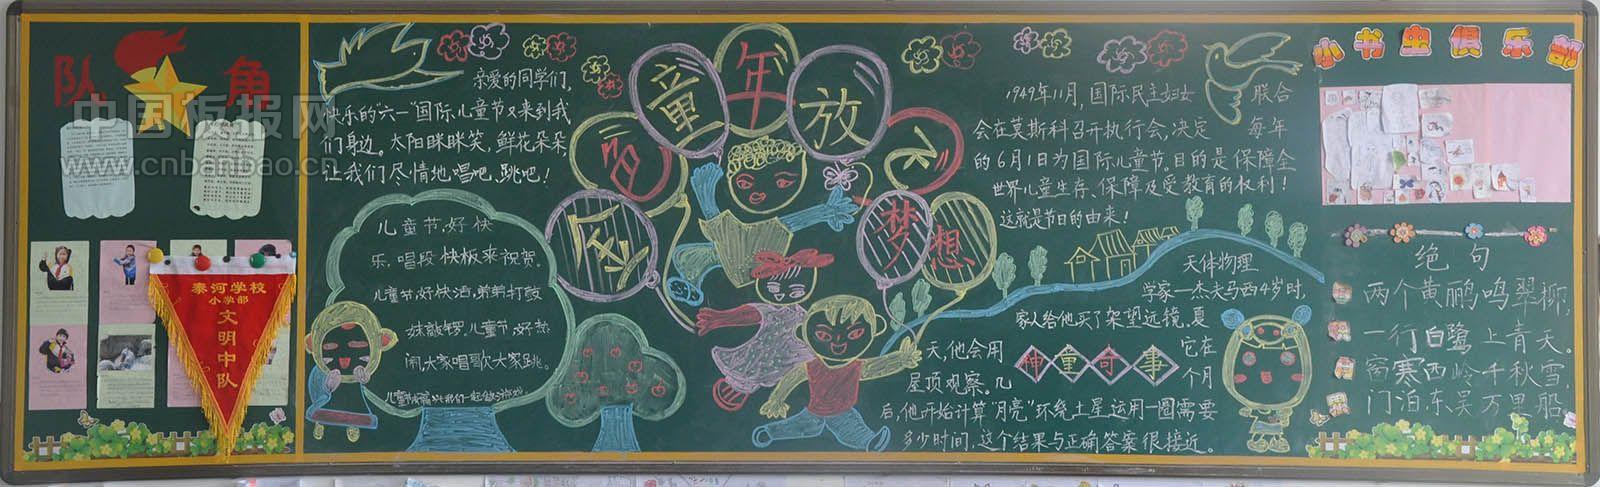 队 角
中国板报网
www.cnbanbao.cn
泰河学校
小学部
文明中队
亲爱的同学们,
快乐的“六一”国际儿童节又来到我
们身边。太阳眯眯笑,鲜花朵朵,
让我们尽情地唱吧,跳吧!
儿童节,好快
乐,唱段快板来祝贺。
儿童节,好快活,弟弟打鼓
妹敲锣,儿童节,好热
闹,大家唱歌大家跳。
童年放飞
梦想
1949年11月,国际民主妇女 联合
会在莫斯科召开执行会,决定 每年
的6月1日为国际儿童节。目的是保障全
世界儿童生存、保障及受教育的权利!
这就是节日的由来!
天体物理
学家一杰夫马西4岁时,
家人给他买了架望远镜,夏
天,他会用 它在
神童奇事
屋顶观察。几 个月
后,他开始计算“月亮”环绕土星运用一圈需要
多少时间,这个结果与正确答案很接近。
小书虫俱乐部
绝句
两个黄鹂鸣翠柳,
一行白鹭上青天。
窗寒西岭千秋雪,
门泊东吴万里船